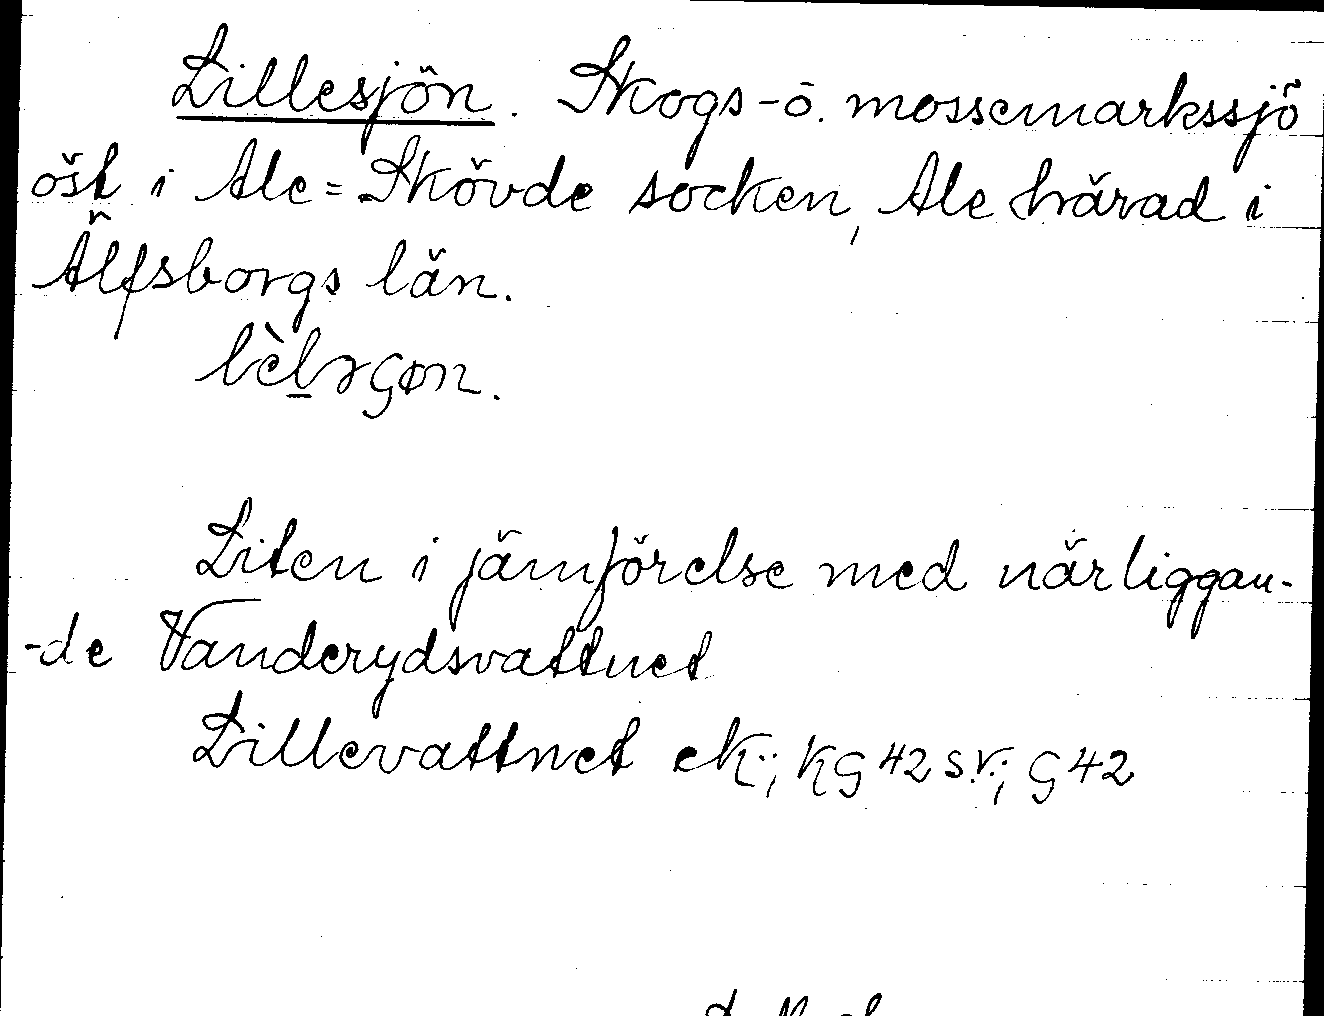 Lillesjön. Skogs- o. mossemarkssjö
öst i Ale=Skövde socken, Ale härad i
Älfsborgs län.
Liten i jämförelse med närliggan-
-de Vanderydsvattnet
Lillevattnet ek.; KG 42 s.v.; G 42